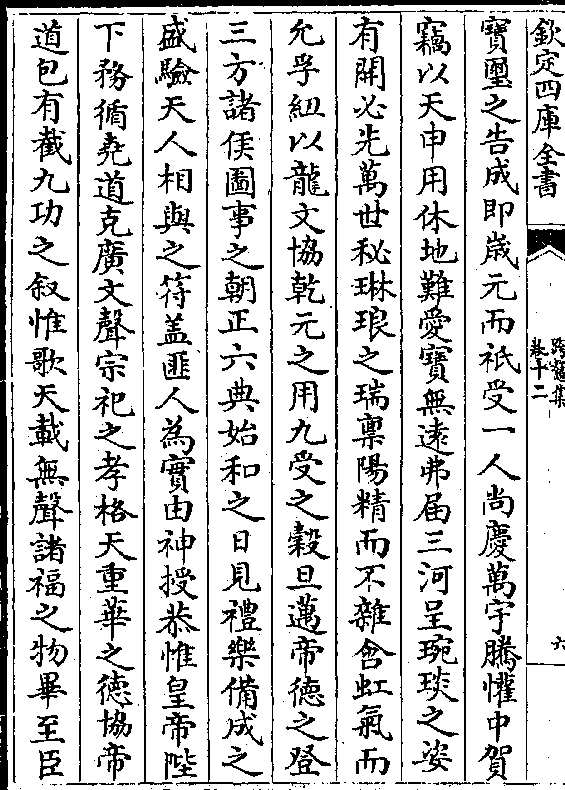 欽定四庫全書
跨鼇集
卷十二
六
寶璽之告成即歳元而祇受一人尚慶萬宇騰懽中賀
竊以天申用休地難愛寶無逺弗届三河呈琬琰之姿
有開必先萬世秘琳琅之瑞稟陽精而不雜含虹氣而
允孚紐以龍文協乾元之用九受之榖旦邁帝德之登
三方諸侯圖事之朝正六典始和之日見禮樂備成之
盛驗天人相與之符盖匪人為實由神授恭惟皇帝陛
下務循堯道克廣文聲宗祀之孝格天重華之德協帝
道包有截九功之叙惟歌天載無聲諸福之物畢至臣